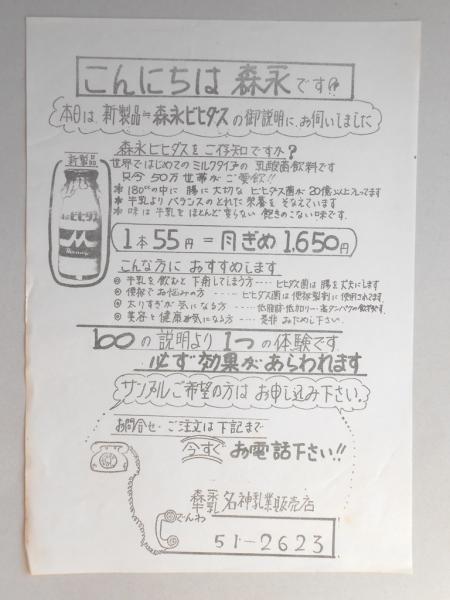 こんにちは 森永です
本日は 新製品 森永ビヒダスの御説明に、お伺いしました
森永ビヒダスをご存知ですか?
新製品
世界ではじめての ミルクタイプの 乳酸菌飲料です
只今 50万世帯が ご愛飲!!
* 180ccの中に 腸に大切な ビヒダス菌が 20億以上入ってます
* 牛乳より バランスのとれた 栄養を そなえています
* 味は 牛乳と ほとんど変らない 飽きのこない味です.
ビヒダス
1本55円 = 月ぎめ 1,650円
こんな方に おすすめします
◎ 牛乳を飲むと 下痢してしまう方 ---- ビヒダス菌は 腸を丈夫にします
◎ 便秘で お悩みの方 ---- ビヒダス菌は 便秘製剤に 使用されてます.
◎ 太りすぎが 気になる方 ---- 低脂肪・低カロリー・高タンパクの飲物です.
◎ 美容と 健康が気になる方 ---- 是非 おためし下さい.
100の説明より 1つの体験です
必ず効果があらわれます
サンプルご希望の方は お申し込み下さい.
お問合せ・ご注文は 下記まで
今すぐ お電話下さい!!
森永牛乳 名神乳業販売店
でんわ
51-2623